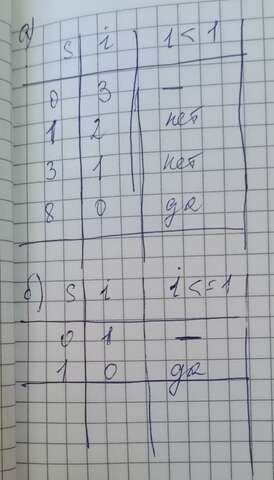 а)
s i i < 1
0 3 —
1 2 нет
3 1 нет
8 0 да
б) s i i <= 1
0 1 —
1 0 да